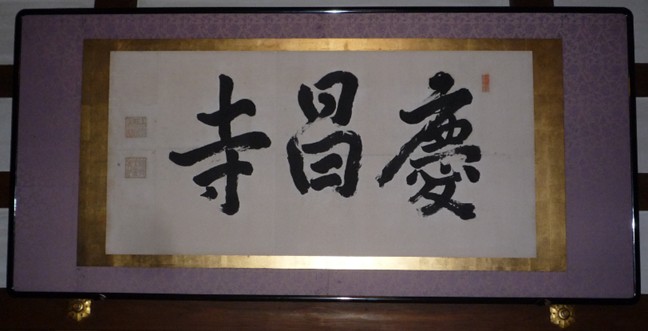 慶昌寺